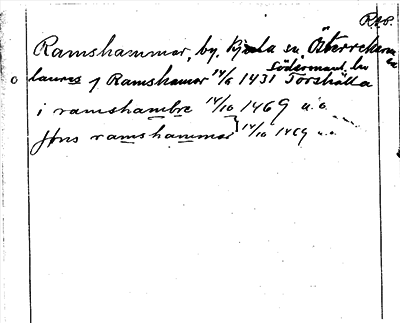 RAP.
Ramshammar, by, Kjula sn, Österrekarne
Södermanl. län
laures j Ramshamar 14/6 1431 Torshälla
i ramshambre 14/10 1469 u.a.
Jöns ramshammar 14/10 1469 u.a.